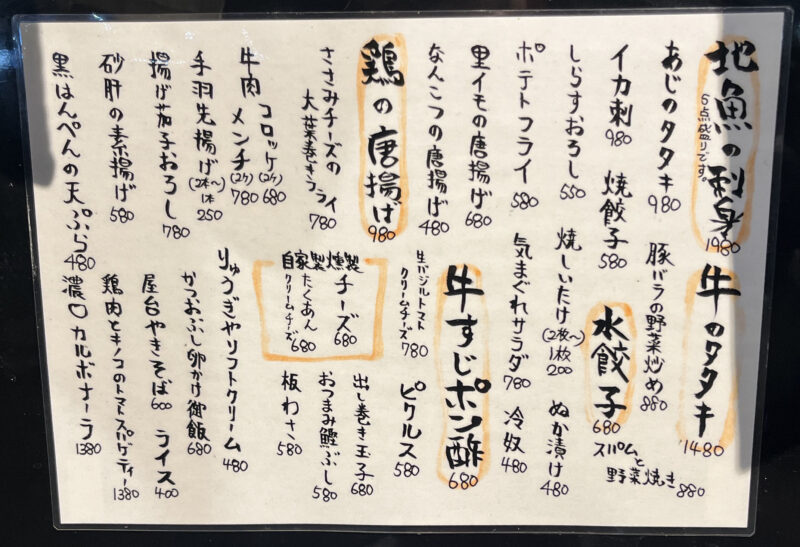 地魚の刺身
5点盛りです。
1980
あじのタタキ
980
イカ刺
980
しらすおろし
550
ポテトフライ
580
里イモの唐揚げ
680
なんこつの唐揚げ
480
鶏の唐揚げ
980
ささみチーズの
大葉巻きフライ
780
牛肉
コロッケ(2ケ)
680
メンチ(2ケ)
780
手羽先揚げ(2本〜)
1本
250
揚げ茄子おろし
780
砂肝の素揚げ
580
黒はんぺんの天ぷら
480
牛のタタキ
1480
豚バラの野菜炒め
880
焼餃子
580
水餃子
680
スパムと
野菜焼き
880
焼しいたけ
(2枚〜)
1枚
200
ぬか漬け
480
気まぐれサラダ
780
冷奴
480
牛すじポン酢
680
生バジルトマト
クリームチーズ
780
ピクルス
580
自家製燻製
チーズ
680
たくあん
クリームチーズ
680
出し巻き玉子
680
おつまみ鰹ぶし
580
板わさ
580
りゅうぎやソフトクリーム
480
かつおぶし卵かけ御飯
680
屋台やきそば
600
ライス
400
鶏肉とキノコのトマトスパゲティー
1380
濃口カルボナーラ
1380